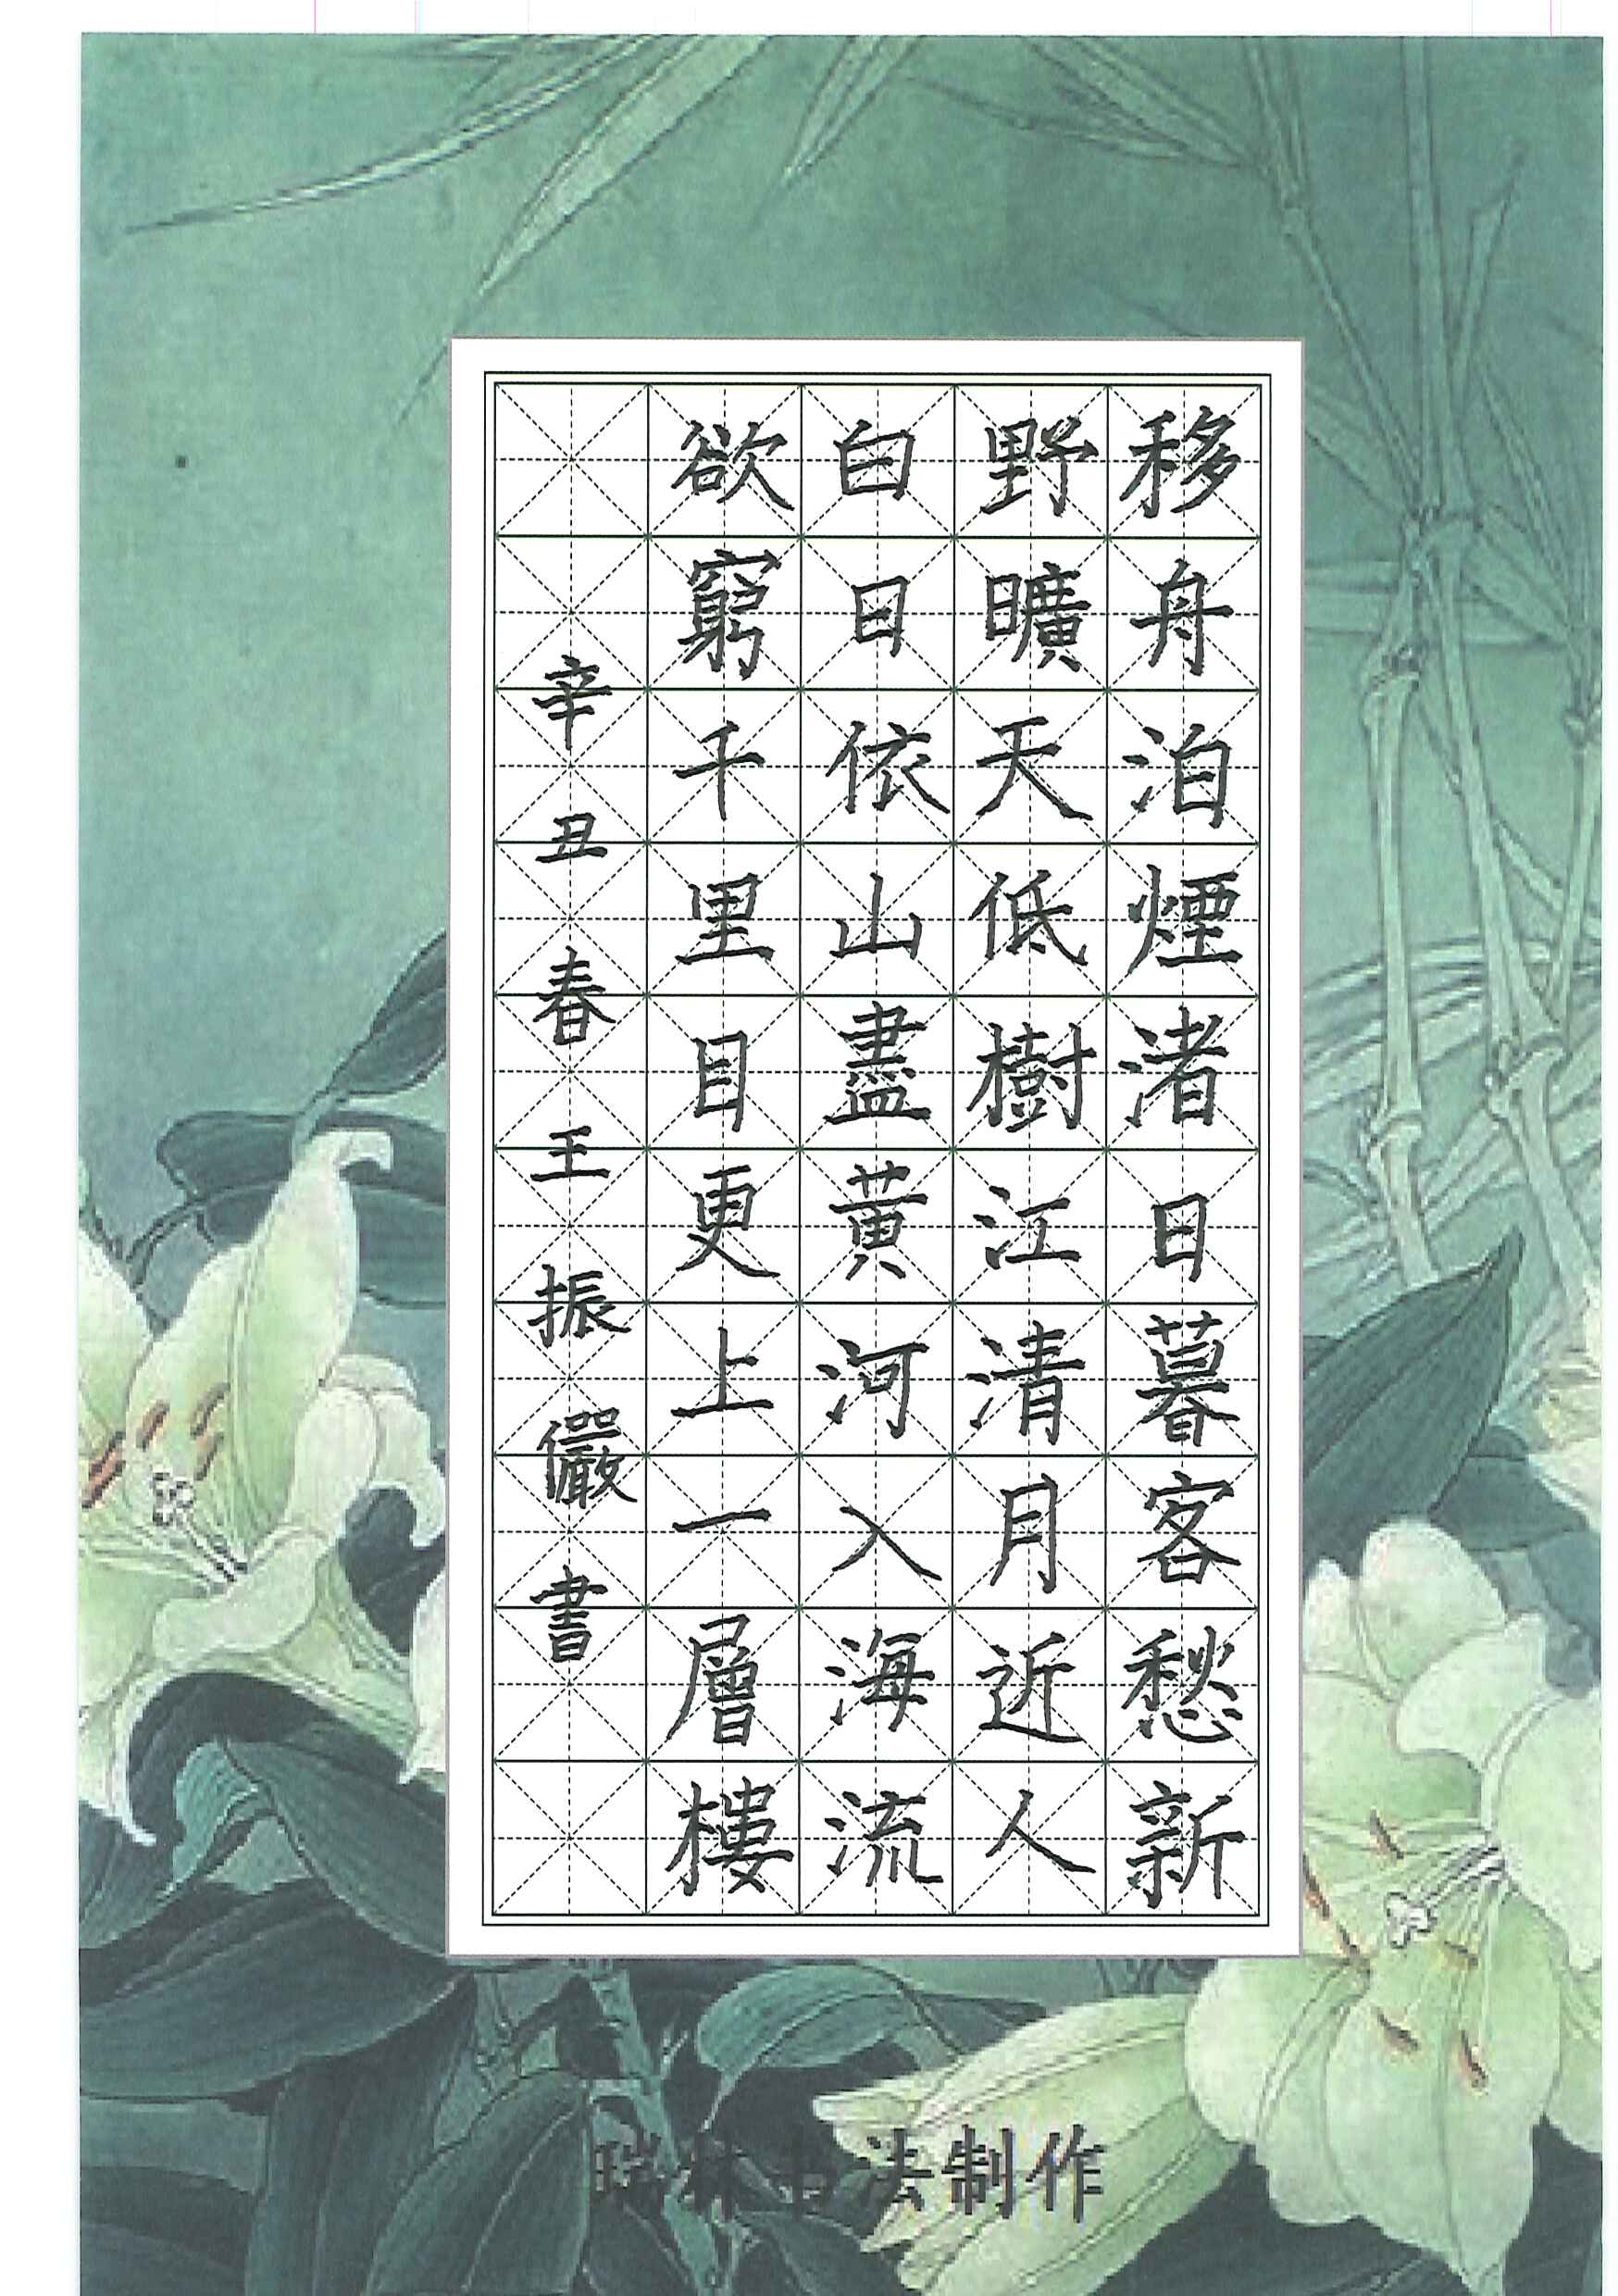 移舟泊煙渚日暮客愁新
野曠天低樹江清月近人
白日依山盡黃河入海流
欲窮千里目更上一層樓
辛丑春王振儼書
法制作